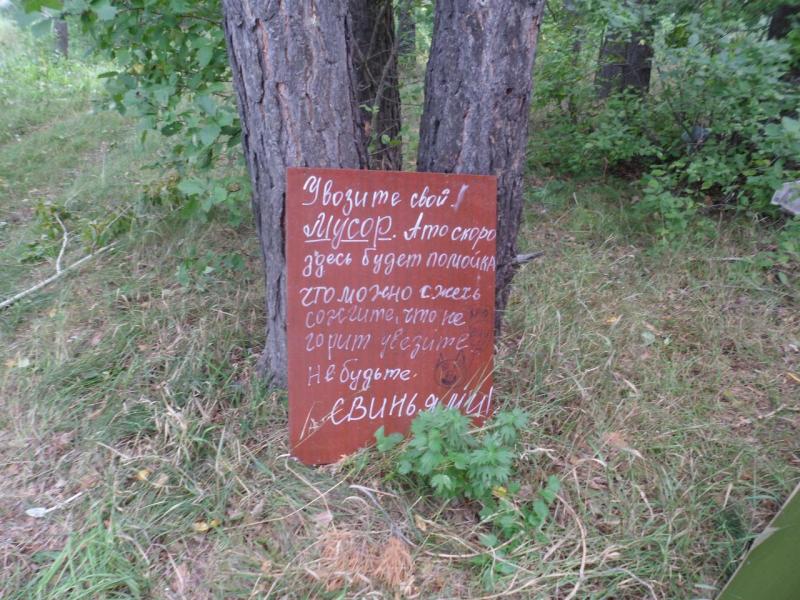 Увозите свой!
Мусор. А то скоро
здесь будет помойка
что можно сжечь
сожгите, что не
горит увезите
не будьте.
свиньями!